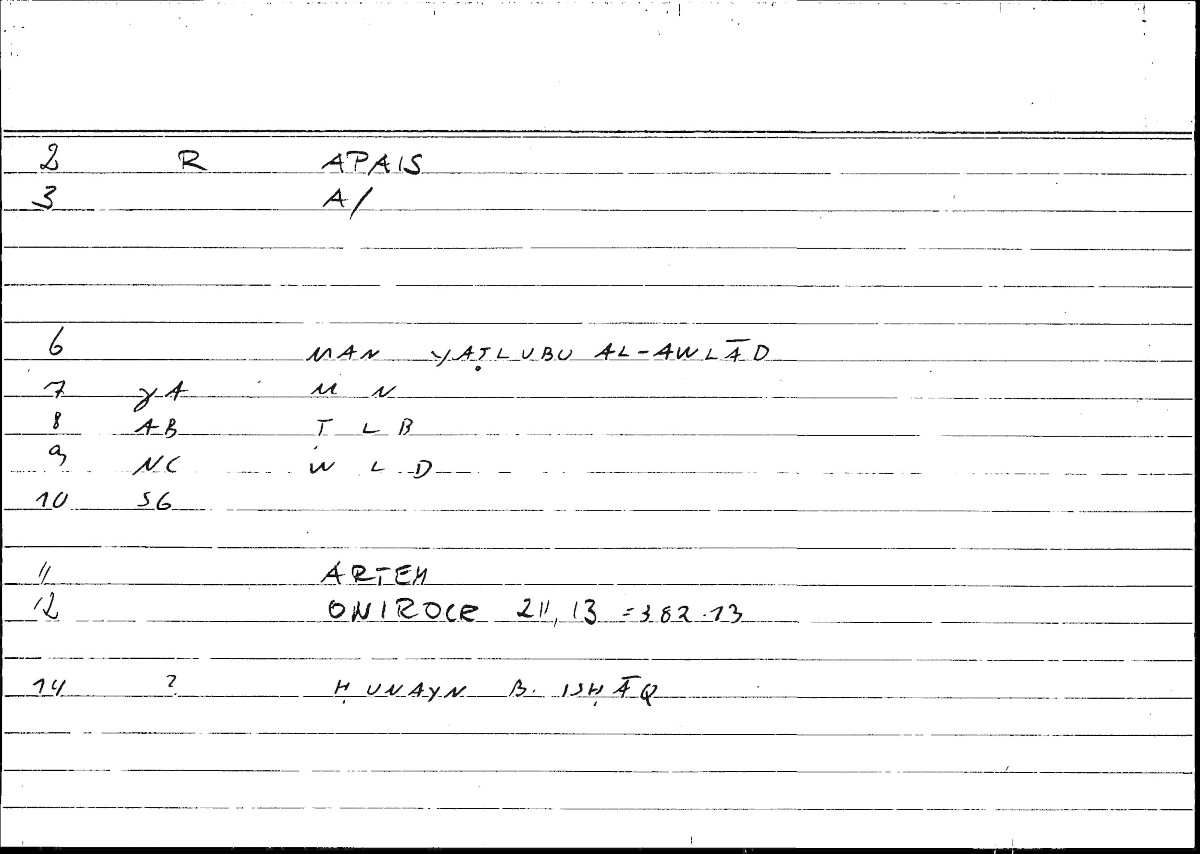 2 R APAIS
3 A/
6 MAN YAṬLUBU AL-AWLĀD
7 γA M N
8 AB T L B
9 NC W L D
10 SG
11 ARTEM
12 ONIROCR 211,13 = 382.13
14 ? ḤUNAYN B. ISḤĀQ